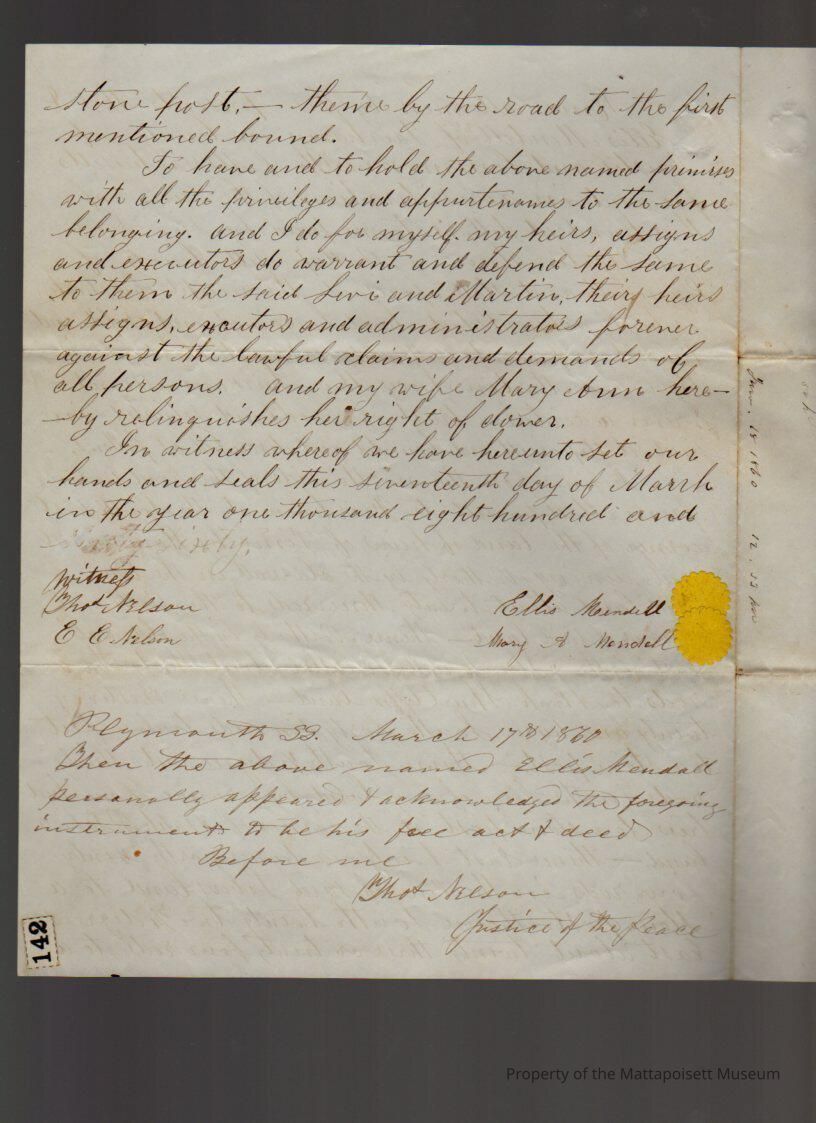 stone post, — thence by the road to the first
mentioned bound.
To have and to hold the above named premises
with all the privileges and appurtenances to the same
belonging. and I do for myself my heirs, assigns
and executors do warrant and defend the same
to them the said Levi and Martin, their heirs
assigns, executors and administrators forever
against the lawful claims and demands of
all persons. and my wife Mary Ann here-
-by relinquishes her right of dower.
In witness whereof we have hereunto set our
hands and seals this seventeenth day of March
in the year one thousand eight hundred and
sixty.
Witness
Thos Nelson
E E Nelson
Ellis Mendell
Mary A Mendell
Plymouth SS. March 17th 1860
Then the above named Ellis Mendall
personally appeared & acknowledged the foregoing
instrument to be his free act & deed
Before me
Thos Nelson
Justice of the Peace
142
1860
Property of the Mattapoisett Museum